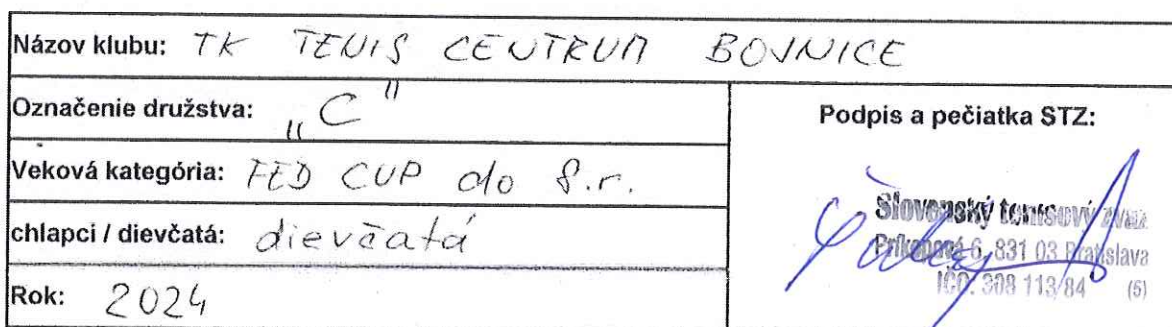 Názov klubu: TK TENIS CENTRUM BOJNICE
Označenie družstva: „C"
Veková kategória: FED CUP do 8.r.
chlapci / dievčatá: dievčatá
Rok: 2024
Podpis a pečiatka STZ:
Slovenský tenisový zväz
Príkopová 6, 831 03 Bratislava
IČO: 308 113/84 (5)